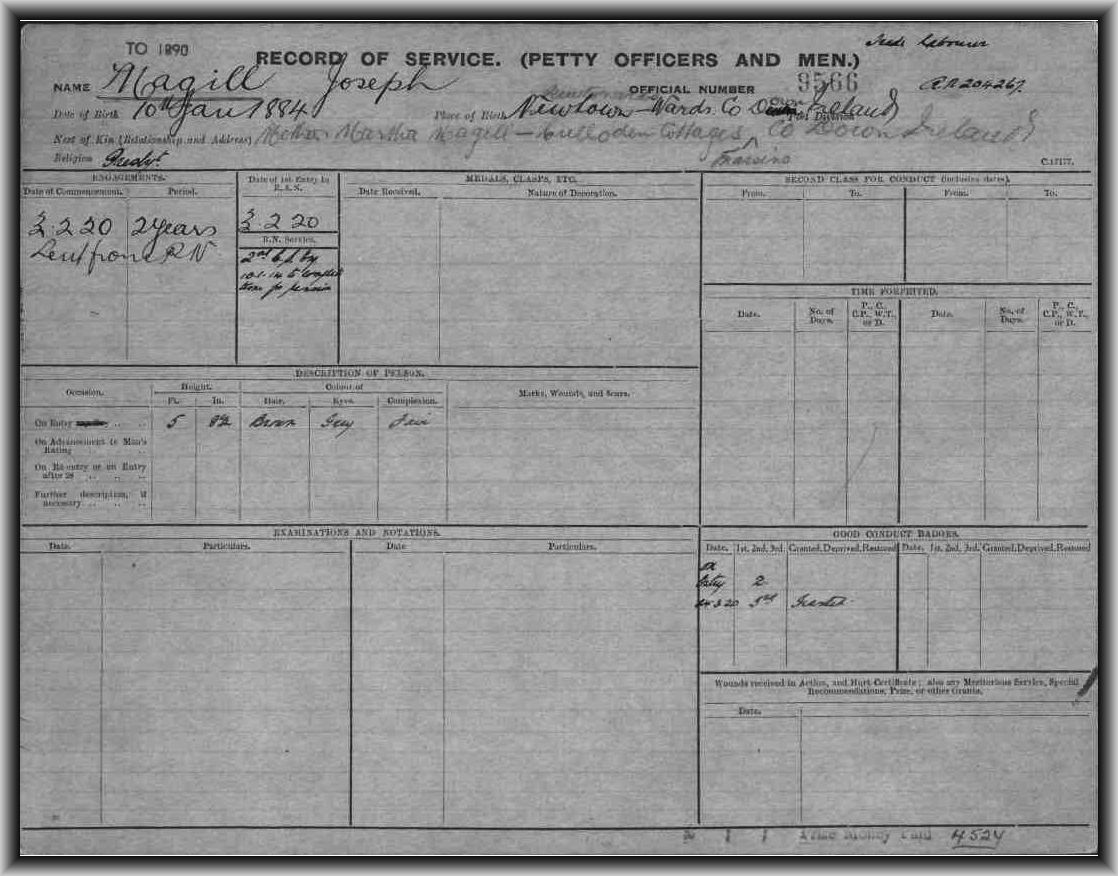 TO 1890
Trade Labourer
RECORD OF SERVICE. (PETTY OFFICERS AND MEN.)
NAME Magill Joseph OFFICIAL NUMBER 9566
Date of Birth 10th Jan 1884 Place of Birth Newtown-Wards. Co Down Ireland
Port Division
Next of Kin (Relationship and Address) Mother Martha Magill - Culloden Cottages Co Down Ireland
Religion Presbt.
C.17177.
ENGAGEMENTS.
Date of Commencement. Period.
2.20 2 years
Lent from RN
Date of 1st Entry in R.A.N.
2 20
R.N. Service.
2nd
10.1.14 to
for pension
MEDALS, CLASPS, ETC.
Date Received. Nature of Decoration.
SECOND CLASS FOR CONDUCT (inclusive dates).
From. To. From. To.
TIME FORFEITED.
Date. No. of Days. P., C., C.P., W.T., or D. Date. No. of Days. P., C., C.P., W.T., or D.
DESCRIPTION OF PERSON.
Occasion. Height. Colour of Marks, Wounds, and Scars.
Ft. In. Hair. Eyes. Complexion.
On Entry .. .. 5 Brown Grey Fair
On Advancement to Man's Rating ..
On Re-entry or on Entry after 28 .. .. ..
Further description, if necessary .. .. ..
EXAMINATIONS AND NOTATIONS.
Date. Particulars. Date Particulars.
GOOD CONDUCT BADGES.
Date. 1st, 2nd, 3rd. Granted, Deprived, Restored Date. 1st, 2nd, 3rd. Granted, Deprived, Restored
On
Entry 2
3 20 3rd Granted
Wounds received in Action, and Hurt Certificate; also any Meritorious Service, Special
Recommendations, Prize, or other Grants.
Date.
Prize Money Paid 4524